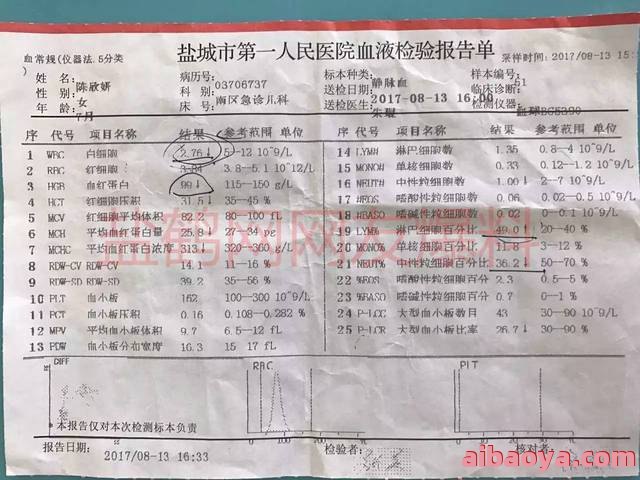 血常规(仪器法,5分类
)
盐城市第一人民医院血液检验报告单
采样时间:2017/08-13 15:
姓 名: 陈欣妍
性 别: 女
年 龄: 7月
病历号: 03706737
科 别:
床 号: 南区急诊儿科
标本种类: 静脉血
送检日期: 2017-08-13 16:00
送检医生:
样本编号: 51
临床诊断:
检测仪器:
序 代号 项目名称 结果 参考范围 单位
1 WBC 白细胞 2.76↓ 5-12 10^9/L
2 RBC 红细胞 3.84 3.8-5.1 10^12/L
3 HGB 血红蛋白 99↓ 115-150 g/L
4 HCT 红细胞压积 31.5↓ 35-45 %
5 MCV 红细胞平均体积 82.2 80-100 fL
6 MCH 平均血红蛋白量 25.8↓ 27-34 pg
7 MCHC 平均血红蛋白浓度 313↓ 320-360 g/L
8 RDW-CV RDW-CV 14.1 11-16 %
9 RDW-SD RDW-SD 39.2 35-56 %
10 PLT 血小板 162 100-300 10^9/L
11 PCT 血小板压积 0.16 0.108-0.282 %
12 MPV 平均血小板体积 9.7 6.5-12 fL
13 PDW 血小板分布宽度 16.3 15 17 fL
序 代号 项目名称 结果 参考范围 单位
14 LYMH 淋巴细胞数 1.35 0.8-4 10^9/L
15 MONO# 单核细胞数 0.33 0.12-1.2 10^9/L
16 NEUT# 中性粒细胞数 1.00↓ 2-7 10^9/L
17 #EOS 嗜酸性粒细胞数 0.06 0.02-0.5 10^9/L
18 #BASO 嗜碱性粒细胞数 0.02 0-0.1 10^9/L
19 LYM% 淋巴细胞百分比 49.0↑ 20-40 %
20 MONO% 单核细胞百分比 11.8 3-12 %
21 NEUT% 中性粒细胞百分比 36.2↓ 50-70 %
22 %EOS 嗜酸性粒细胞百分 2.3 0.5-5 %
23 %BASO 嗜碱性粒细胞百分 0.7 0-1 %
24 P-LCC 大型血小板数目 43 30-90 10^9/L
25 P-LCR 大型血小板比率 26.7↓ 30-90 %
DIFF
RBC
PLT
*本报告仅对本次检测标本负责
报告日期:
2017/08-13 16:33
检验者:
核对者:
aibaoya.com